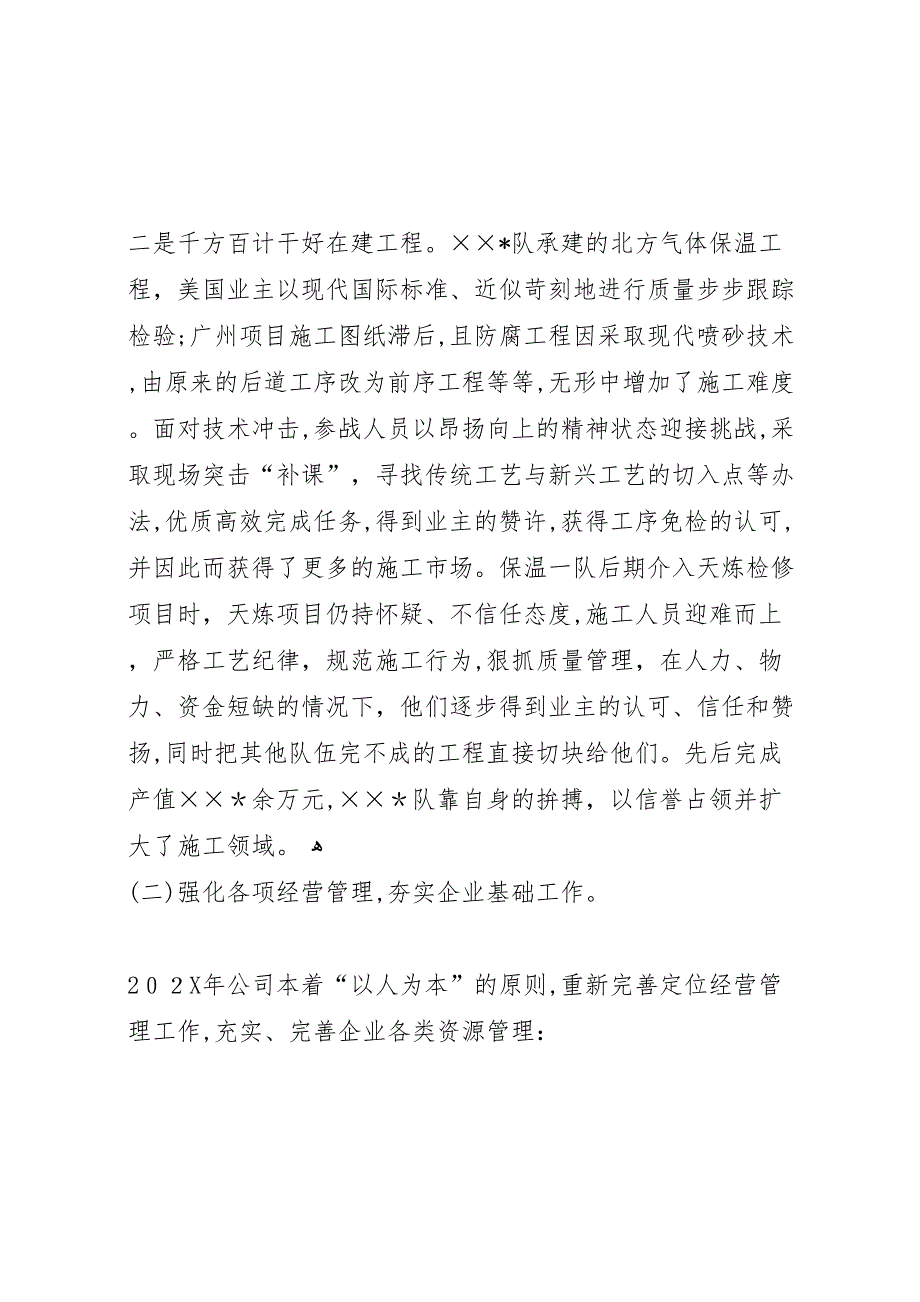 二是千方百计干好在建工程。××*队承建的北方气体保温工
程，美国业主以现代国际标准、近似苛刻地进行质量步步跟踪
检验;广州项目施工图纸滞后,且防腐工程因采取现代喷砂技术
,由原来的后道工序改为前序工程等等,无形中增加了施工难度
。面对技术冲击,参战人员以昂扬向上的精神状态迎接挑战,采
取现场突击“补课”，寻找传统工艺与新兴工艺的切入点等办
法,优质高效完成任务,得到业主的赞许,获得工序免检的认可,
并因此而获得了更多的施工市场。保温一队后期介入天炼检修
项目时，天炼项目仍持怀疑、不信任态度,施工人员迎难而上
，严格工艺纪律，规范施工行为,狠抓质量管理，在人力、物
力、资金短缺的情况下，他们逐步得到业主的认可、信任和赞
扬,同时把其他队伍完不成的工程直接切块给他们。先后完成
产值××＊余万元,××＊队靠自身的拚搏，以信誉占领并扩
大了施工领域。ﻫ
(二)强化各项经营管理,夯实企业基础工作。
20２X年公司本着“以人为本”的原则,重新完善定位经营管
理工作,充实、完善企业各类资源管理: